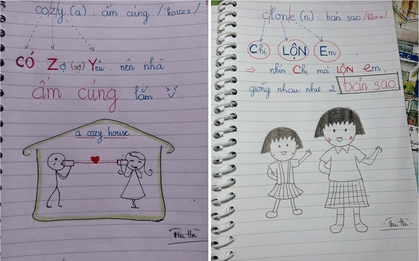 cozy (a) : ấm cúng /'kouzi/
CÓ Zợ (vợ) Yêu nên nhà
ấm cúng lắm
a cozy house
Thu Hà
clone (n) : bản sao /kləʊn/
Chị LỘN Em
⇒ nhìn Chị mà LỘN em
giống nhau như 2 bản sao
Thu Hà